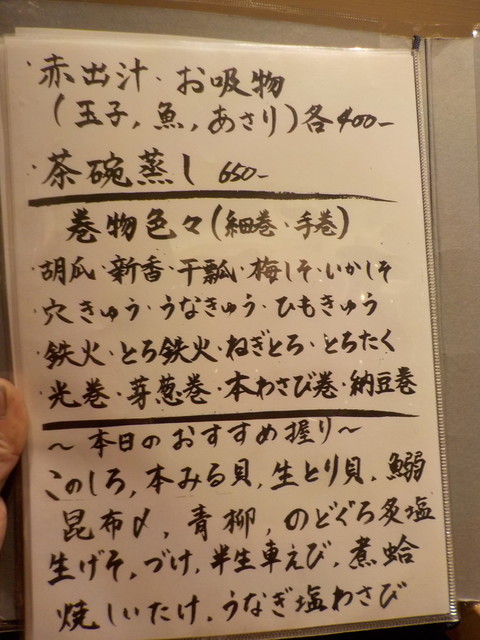 ・赤出汁・お吸物
(玉子,魚,あさり)各400-
・茶碗蒸し 650-
巻物色々(細巻・手巻)
・胡瓜・新香・干瓢・梅しそ・いかしそ
・穴きゅう・うなきゅう・ひもきゅう
・鉄火・とろ鉄火・ねぎとろ・とろたく
・光巻・芽葱巻・本わさび巻・納豆巻
~本日のおすすめ握り~
このしろ,本みる貝,生とり貝,鰯
昆布〆,青柳,のどぐろ炙塩
生げそ,づけ,半生車えび,煮蛤
焼しいたけ,うなぎ塩わさび